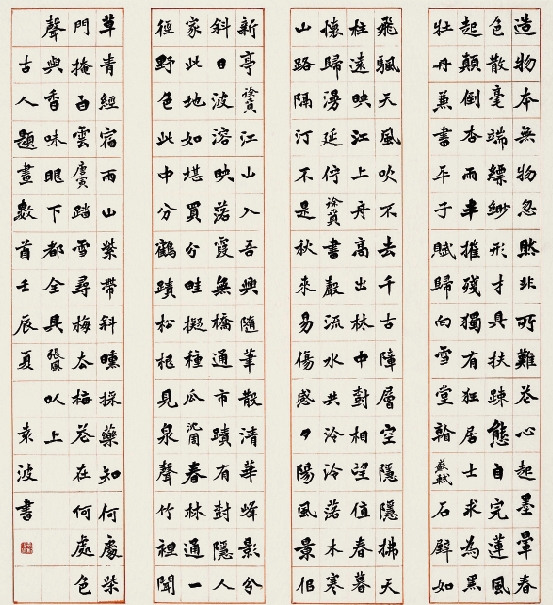 造物本無物忽然非所難花心起墨暈春
色散毫端縹緲形才具扶疎態自完蓮風
起顛倒杏雨半摧殘獨有狂居士求為黑
牡丹兼書平子賦歸向雪堂看蘇軾石壁如
飛颿天風吹不去千古障層空隱隱拂天
柱遠映江上舟高出林中封相望值春暮
懷歸湯延佇徐賁書巖流水共泠泠落木寒
山路隔汀不是秋來易傷感夕陽風景佀
新亭徐賁江山入吾興隨筆散清華峰影分
斜日波溶映落霞無橋通市蹟有封隱人
家此地如堪買分畦擬種瓜沈周春林通一
徑野色此中分鶴蹟松根見泉聲竹裡聞
草青經宿雨山紫帶斜曛採藥知何處柴
門掩白雲唐寅踏雪尋梅去梅花在何處色
聲與香味眼下都全具張鳳以上
古人題畫數首壬辰夏袁波書